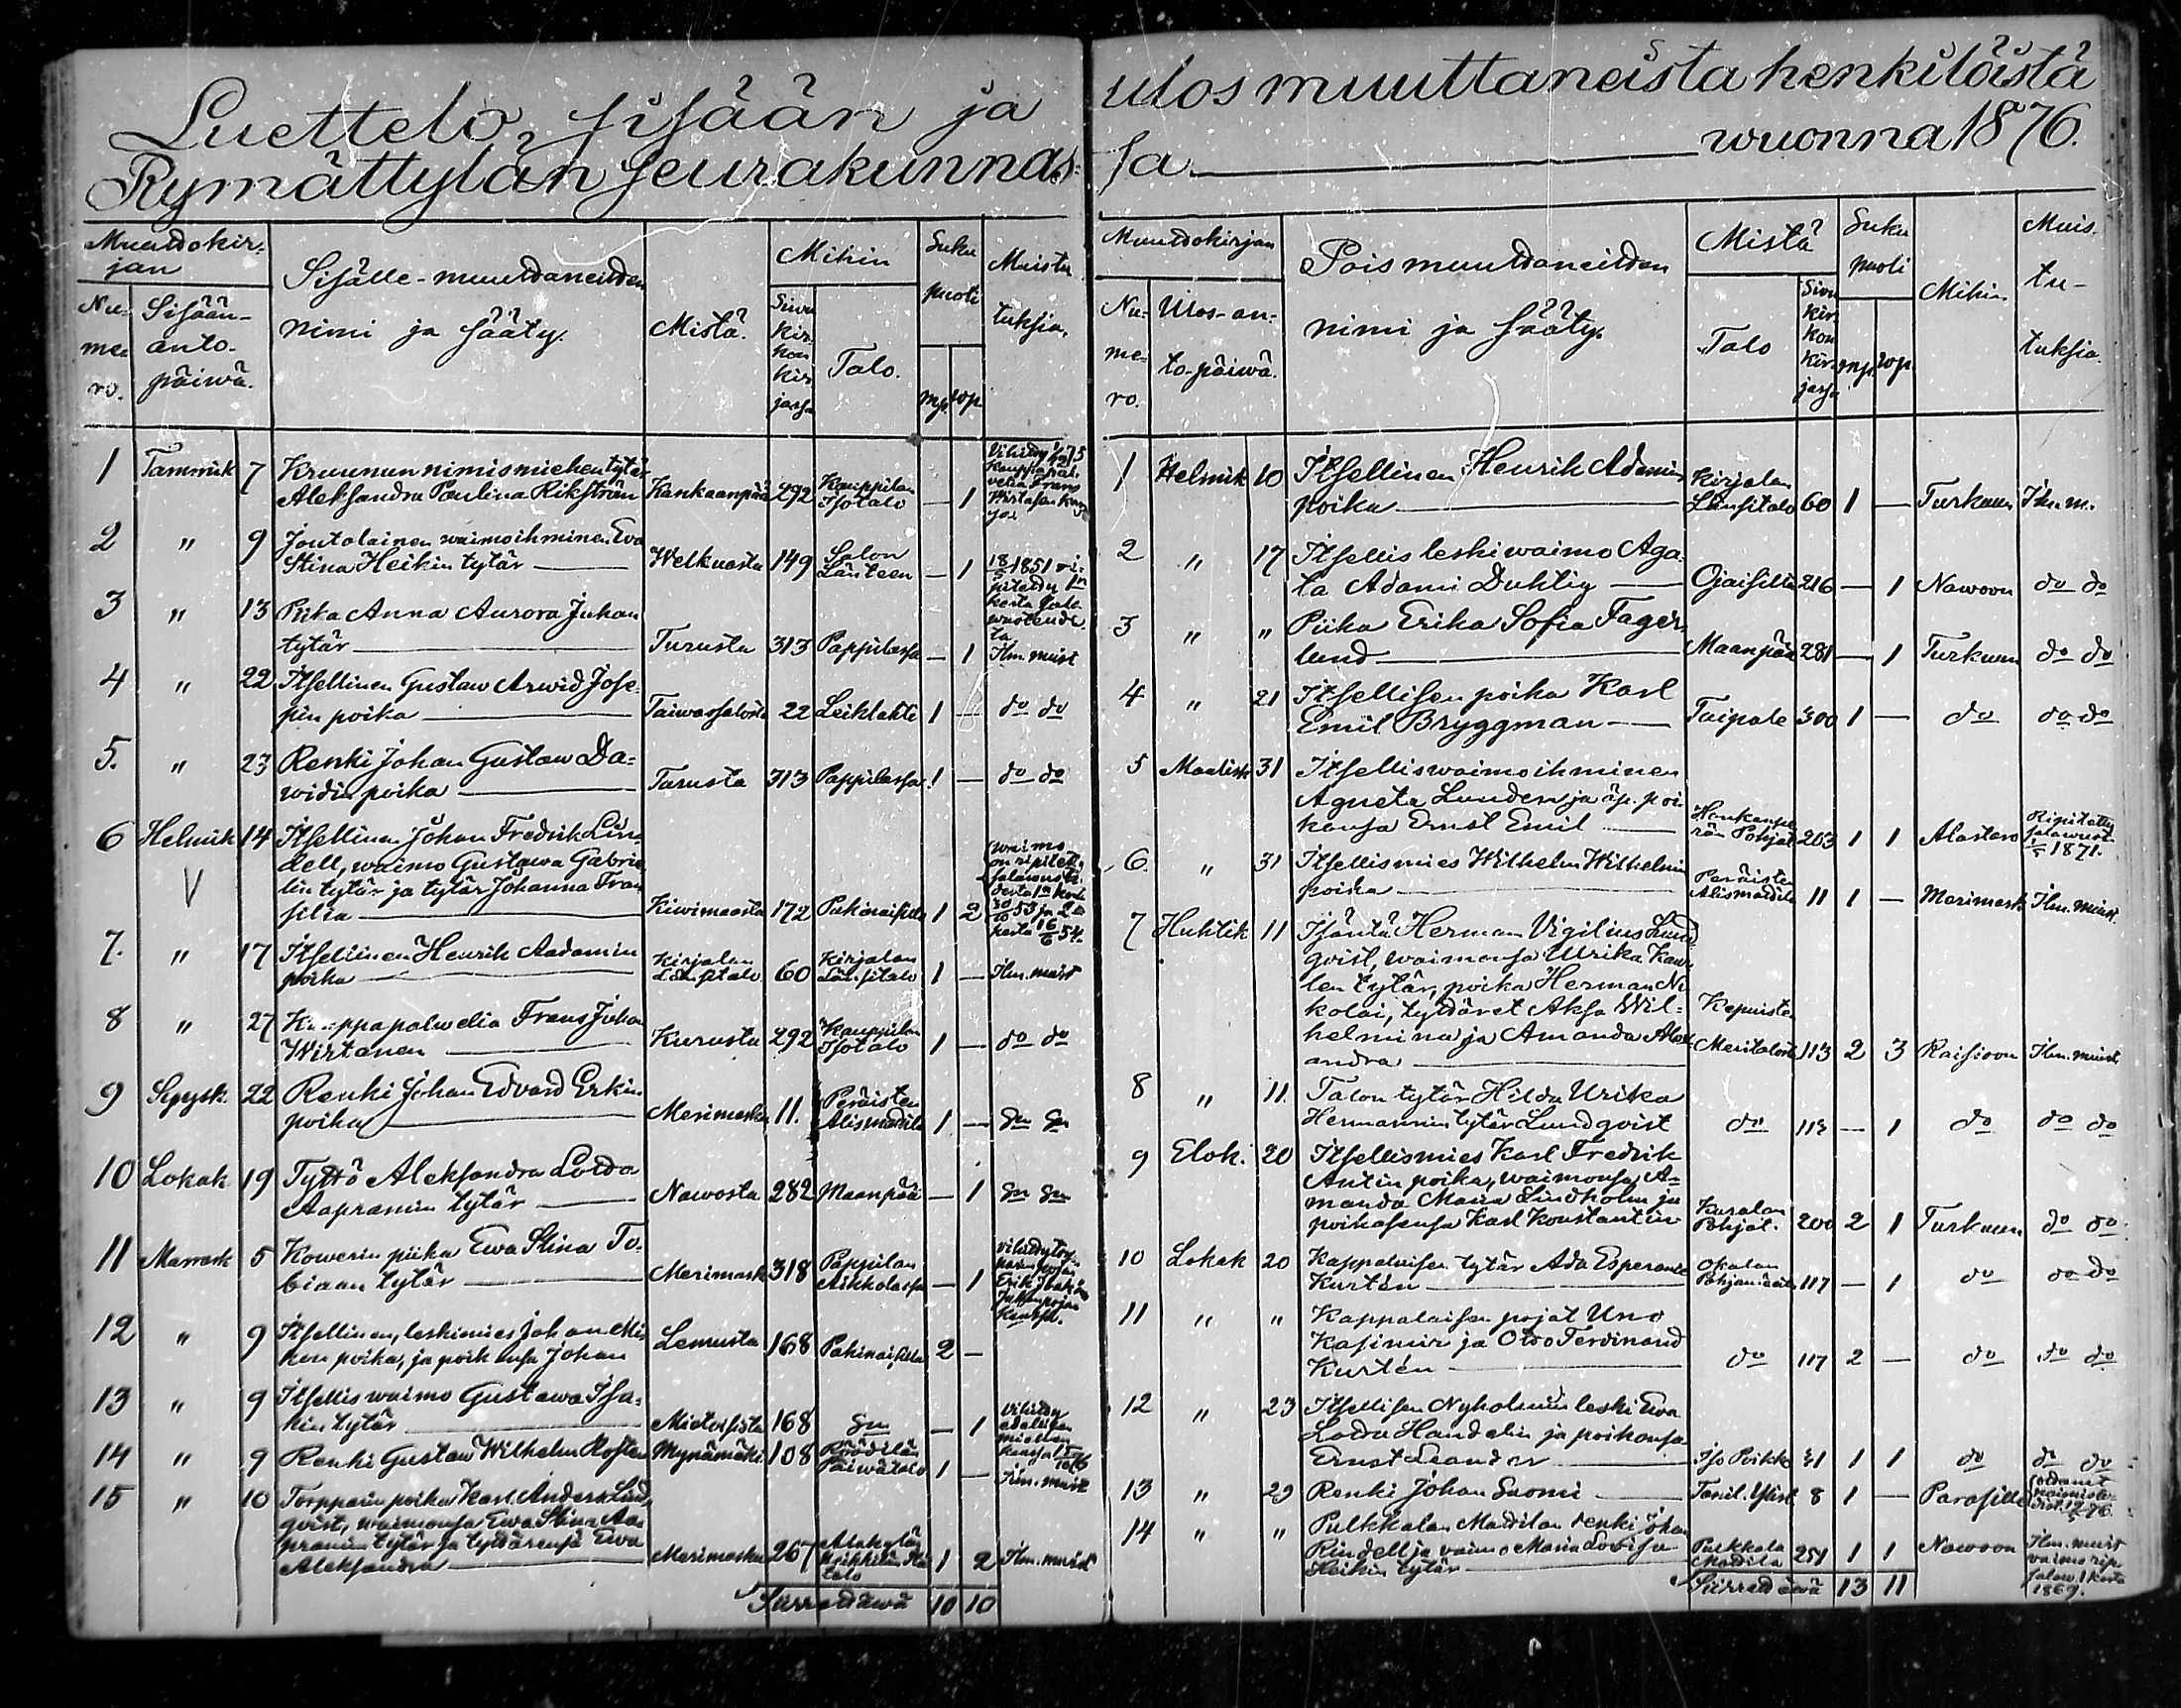 Luettelo sisään ja ulos muuttaneista henkilöistä
Rymättylän seurakunnassa wuonna 1876.
Muuttokirjan
Sisälle-muuttaneitten nimi ja sääty.
Mistä.
Mihin
Suku puoli
Muistutuksia.
Numero.
Sisään-anto-päiwä.
Siwu kirkon kirjassa
Talo.
mp. wp.
1 Tammik 7 Kruunun nimismiehen tytär
Aleksandra Paulina Rikström Kankaanpää 292 Kauppilan Isotalo — 1
2 " 9 Joutolainen waimoihminen Ewa
Stina Heikin tytär Welkuasta 149 Salon Länteen — 1
3 " 13 Piika Anna Aurora Juhan
tytär Turusta 313 Pappilassa — 1 Ilm. muist
4 " 22 Itsellinen Gustaw Arwid Jose-
pin poika Taiwassalosta 22 Leiklahti 1 — do do
5. " 23 Renki Johan Gustaw Da=
widin poika Turusta 313 Pappilassa 1 — do do
6 Helmik 14 Itsellinen Johan Fredrik Lin-
dell, waimo Gustawa Gabrie
lin tytär ja tytär Johanna Fran
silia Kiwimaasta 172 Pakinaisilla 1 2
V
7. " 17 Itsellinen Henrik Aadamin
poika Kirjalan Länsitalo 60 Kirjalan Länsitalo 1 — Ilm. muist
8 " 27 Kauppapalwelia Frans Johan
Wirtanen Kurusta 292 Kauppilan Isotalo 1 — do do
9 Syysk. 22 Renki Johan Edvard Erkin
poika Merimasku 11. Peräisten Alismattila 1 —
10 Lokak 19 Tyttö Aleksandra Lovisa
Aapramin tytär Nawosta 282 Maanpää — 1
11 Marrask 5 Kowerin piika Ewa Stina To-
biaan tytär Merimask 318 Pappilan Aikkolassa — 1
12 " 9 Itsellinen, leskimies Johan Mi
poika, ja poikansa Johan Lemusta 168 Pakinaisilla 2 —
13 " 9 Itsellis waimo Gustawa Isa-
kin tytär Mietoisista 168 — 1
14 " 9 Renki Gustaw Wilhelm Mynämäki 108 Päiwätalo 1 — Ilm. muist
15 " 10 Torpparin poika Karl Anders Lind
qvist, waimonsa Ewa Stina Aa-
pramin tytär ja tyttärensä Ewa
Aleksandra Merimasku 267 1 2 Ilm. muist
Siirrettäwä 10 10
Muuttokirjan
Pois muuttaneitten nimi ja sääty.
Mistä
Suku puoli
Mihin
Muistutuksia.
Numero.
Ulos-anto-päiwä.
Talo
Siwu kirkon kirjassa
mp. wp.
1 Helmik 10 Itsellinen Henrik Adamin
poika Kirjalan Länsitalo 60 1 — Turkuun Ilm. m.
2 " 17 Itsellis leskiwaimo Aga-
ta Adami Duhtig Ojaisilta 216 — 1 Nawoon do do
3 " " Piika Erika Sofia Fager-
lund Maanpää 281 — 1 Turkuun do do
4 " 21 Itsellisen poika Karl
Emil Bryggman Taipale 300 1 — do do do
5 Maalisk 31 Itselliswaimoihminen
Agneta Lunden ja äp. poi
kansa Ernst Emil Pohjat. 263 1 1 Alastaro 1871.
6. " 31 Itsellismies Wilhelm Wilhelmin
poika Peräisten Alismattila 11 1 — Merimask Ilm. muist
7 Huhtik 11 Isäntä Herman Vigilius Lund
qvist, waimonsa Ulrika Kaar
len tytär, poika Herman Ni
kolai, tyttäret Aksa Wil=
helmina ja Amanda Alex-
andra Meritalosta 113 2 3 Raisioon Ilm. muist
8 " 11. Talon tytär Hilda Urika
Hermannin tytär Lundqvist do 113 — 1 do do do
9 Elok. 20 Itsellismies Karl Fredrik
Antin poika, waimonsa A-
manda Maria Lindholm ja
poikasensa Karl Konstantin Kuralan Pohjat. 200 2 1 Turkuun do do
10 Lokak 20 Kappalaisen tytär Ada Esperance
Kurtén 117 — 1 do do do
11 " " Kappalaisen pojat Uno
Kasimir ja Otto Ferdinand
Kurtén do 117 2 — do do do
12 " 23 Itsellisen Nyholmin leski Ewa
Lovisa Handelin ja poikansa
Ernst Leander Iso Poikko 31 1 1 do do do
13 " 29 Renki Johan Suomi 8 1 —
14 " " Pulkkalan Mattilan renki Johan
Rindell ja vaimo Maria Lovisa
Heikin tytär Pulkkala Mattila 251 1 1 Nawoon Ilm. muist vaimo rip. salaw. 1 kerta 1869.
Siirrettäwä 13 11